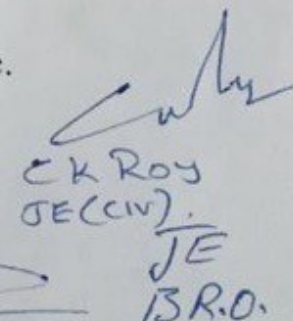 C K Roy
JE (CIV).
JE
B.R.O.